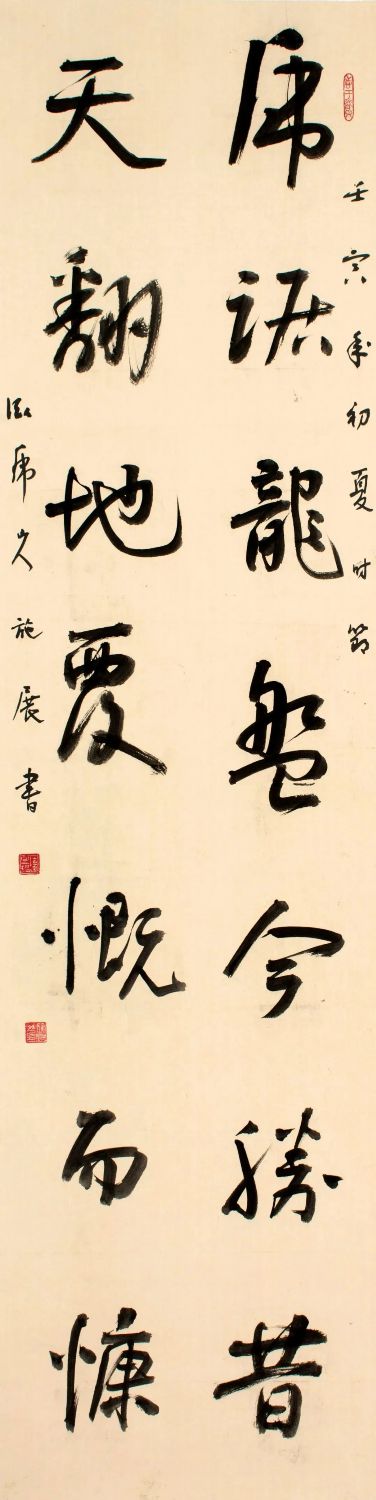 壬寅年初夏时節
虎踞龍盤今勝昔
天翻地覆慨而慷
臥虎山人施展書